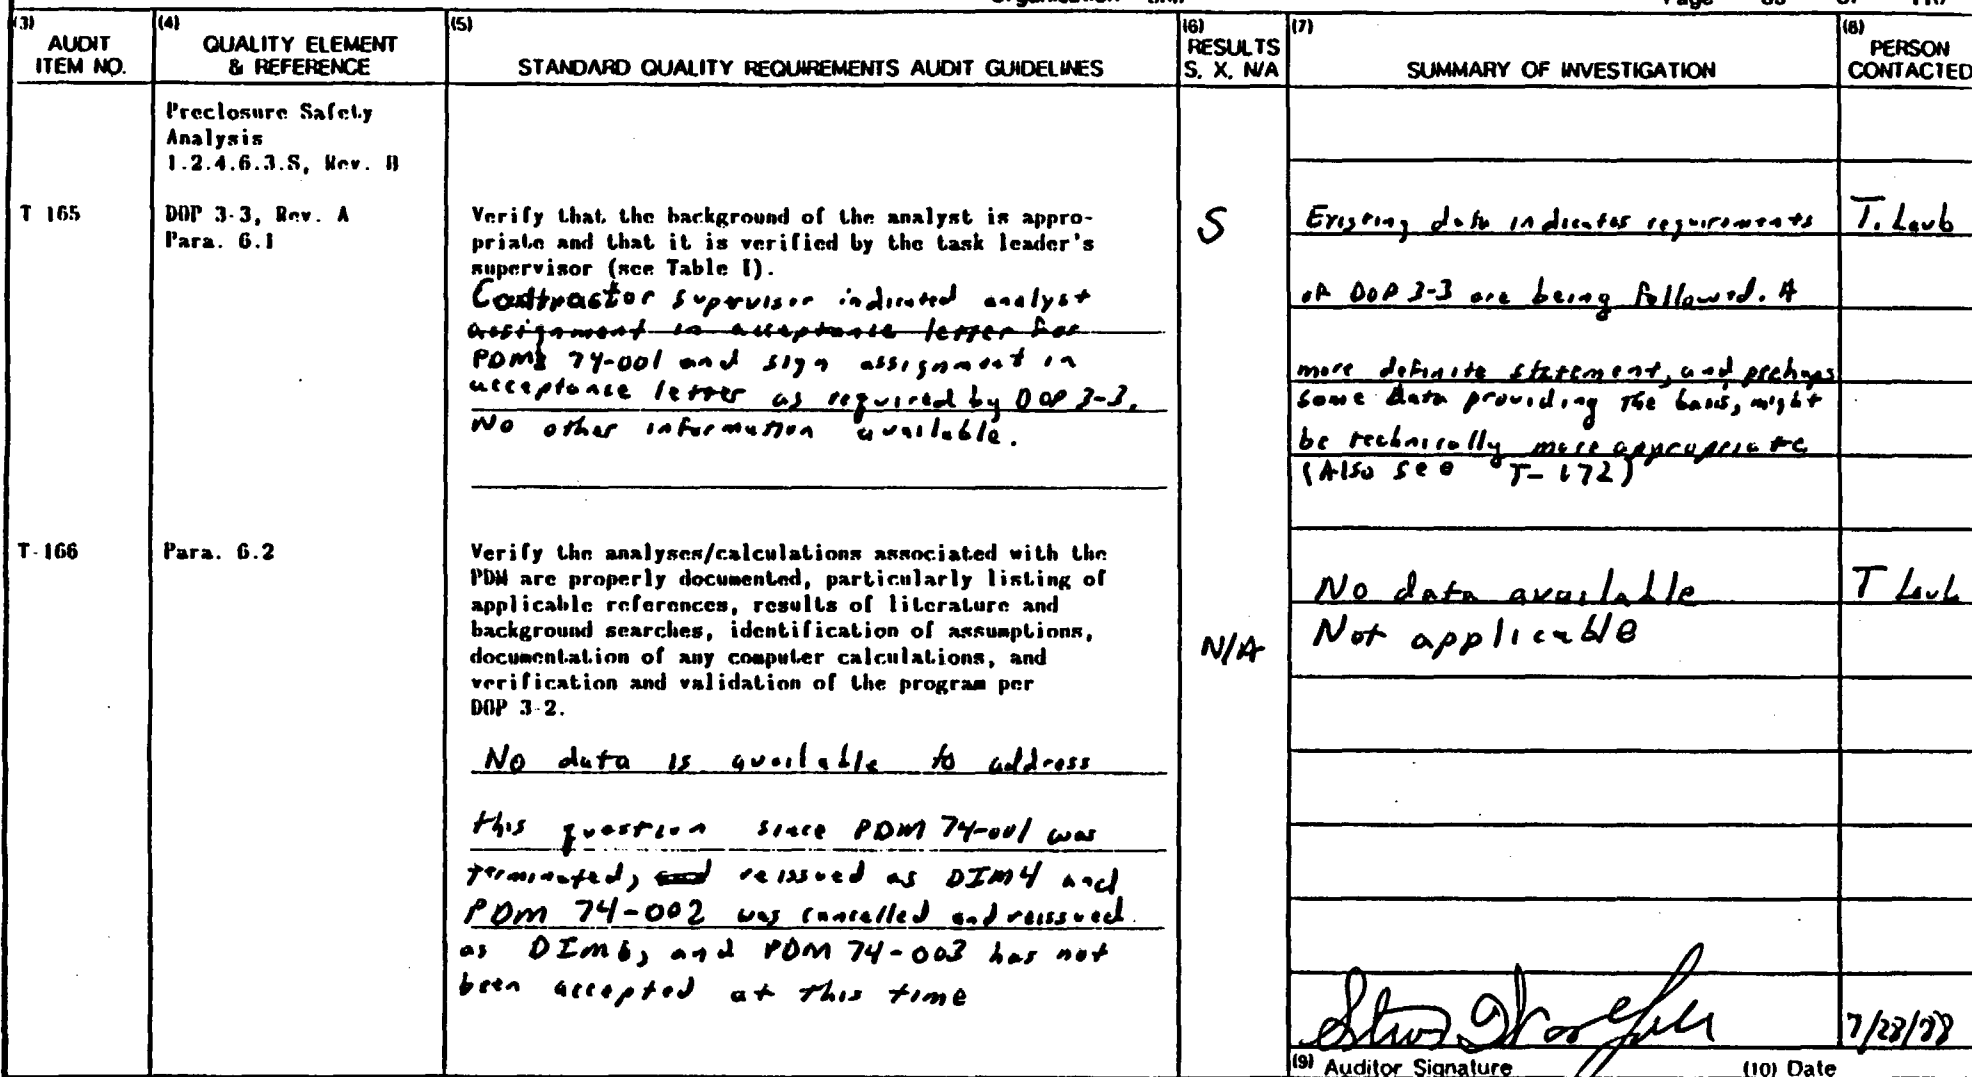 (3)
AUDIT
ITEM NO.
(4)
QUALITY ELEMENT
& REFERENCE
(5)
STANDARD QUALITY REQUIREMENTS AUDIT GUIDELINES
(6)
RESULTS
S, X, N/A
(7)
SUMMARY OF INVESTIGATION
(8)
PERSON
CONTACTED
Preclosure Safety
Analysis
1.2.4.6.3.S, Rev. B
T 165
DOP 3-3, Rev. A
Para. 6.1
Verify that the background of the analyst is appro-
priate and that it is verified by the task leader's
supervisor (see Table I).
Contractor supervisor indicated analyst
assignment in acceptance letter for
PDM 74-001 and sign assignment in
acceptance letter as required by DOP 3-3.
No other information available.
S
Existing data indicates requirements
of DOP 3-3 are being followed. A
more definite statement, and perhaps
some data providing the basis, might
be technically more appropriate
(Also see T-172)
T. Laub
T-166
Para. 6.2
Verify the analyses/calculations associated with the
PDM are properly documented, particularly listing of
applicable references, results of literature and
background searches, identification of assumptions,
documentation of any computer calculations, and
verification and validation of the program per
DOP 3-2.
No data is available to address
this question since PDM 74-001 was
terminated, reissued as DIM4 and
PDM 74-002 was cancelled and reissued
as DIM6, and PDM 74-003 has not
been accepted at this time
N/A
No data available
Not applicable
T Laub
7/28/88
(9) Auditor Signature
(10) Date